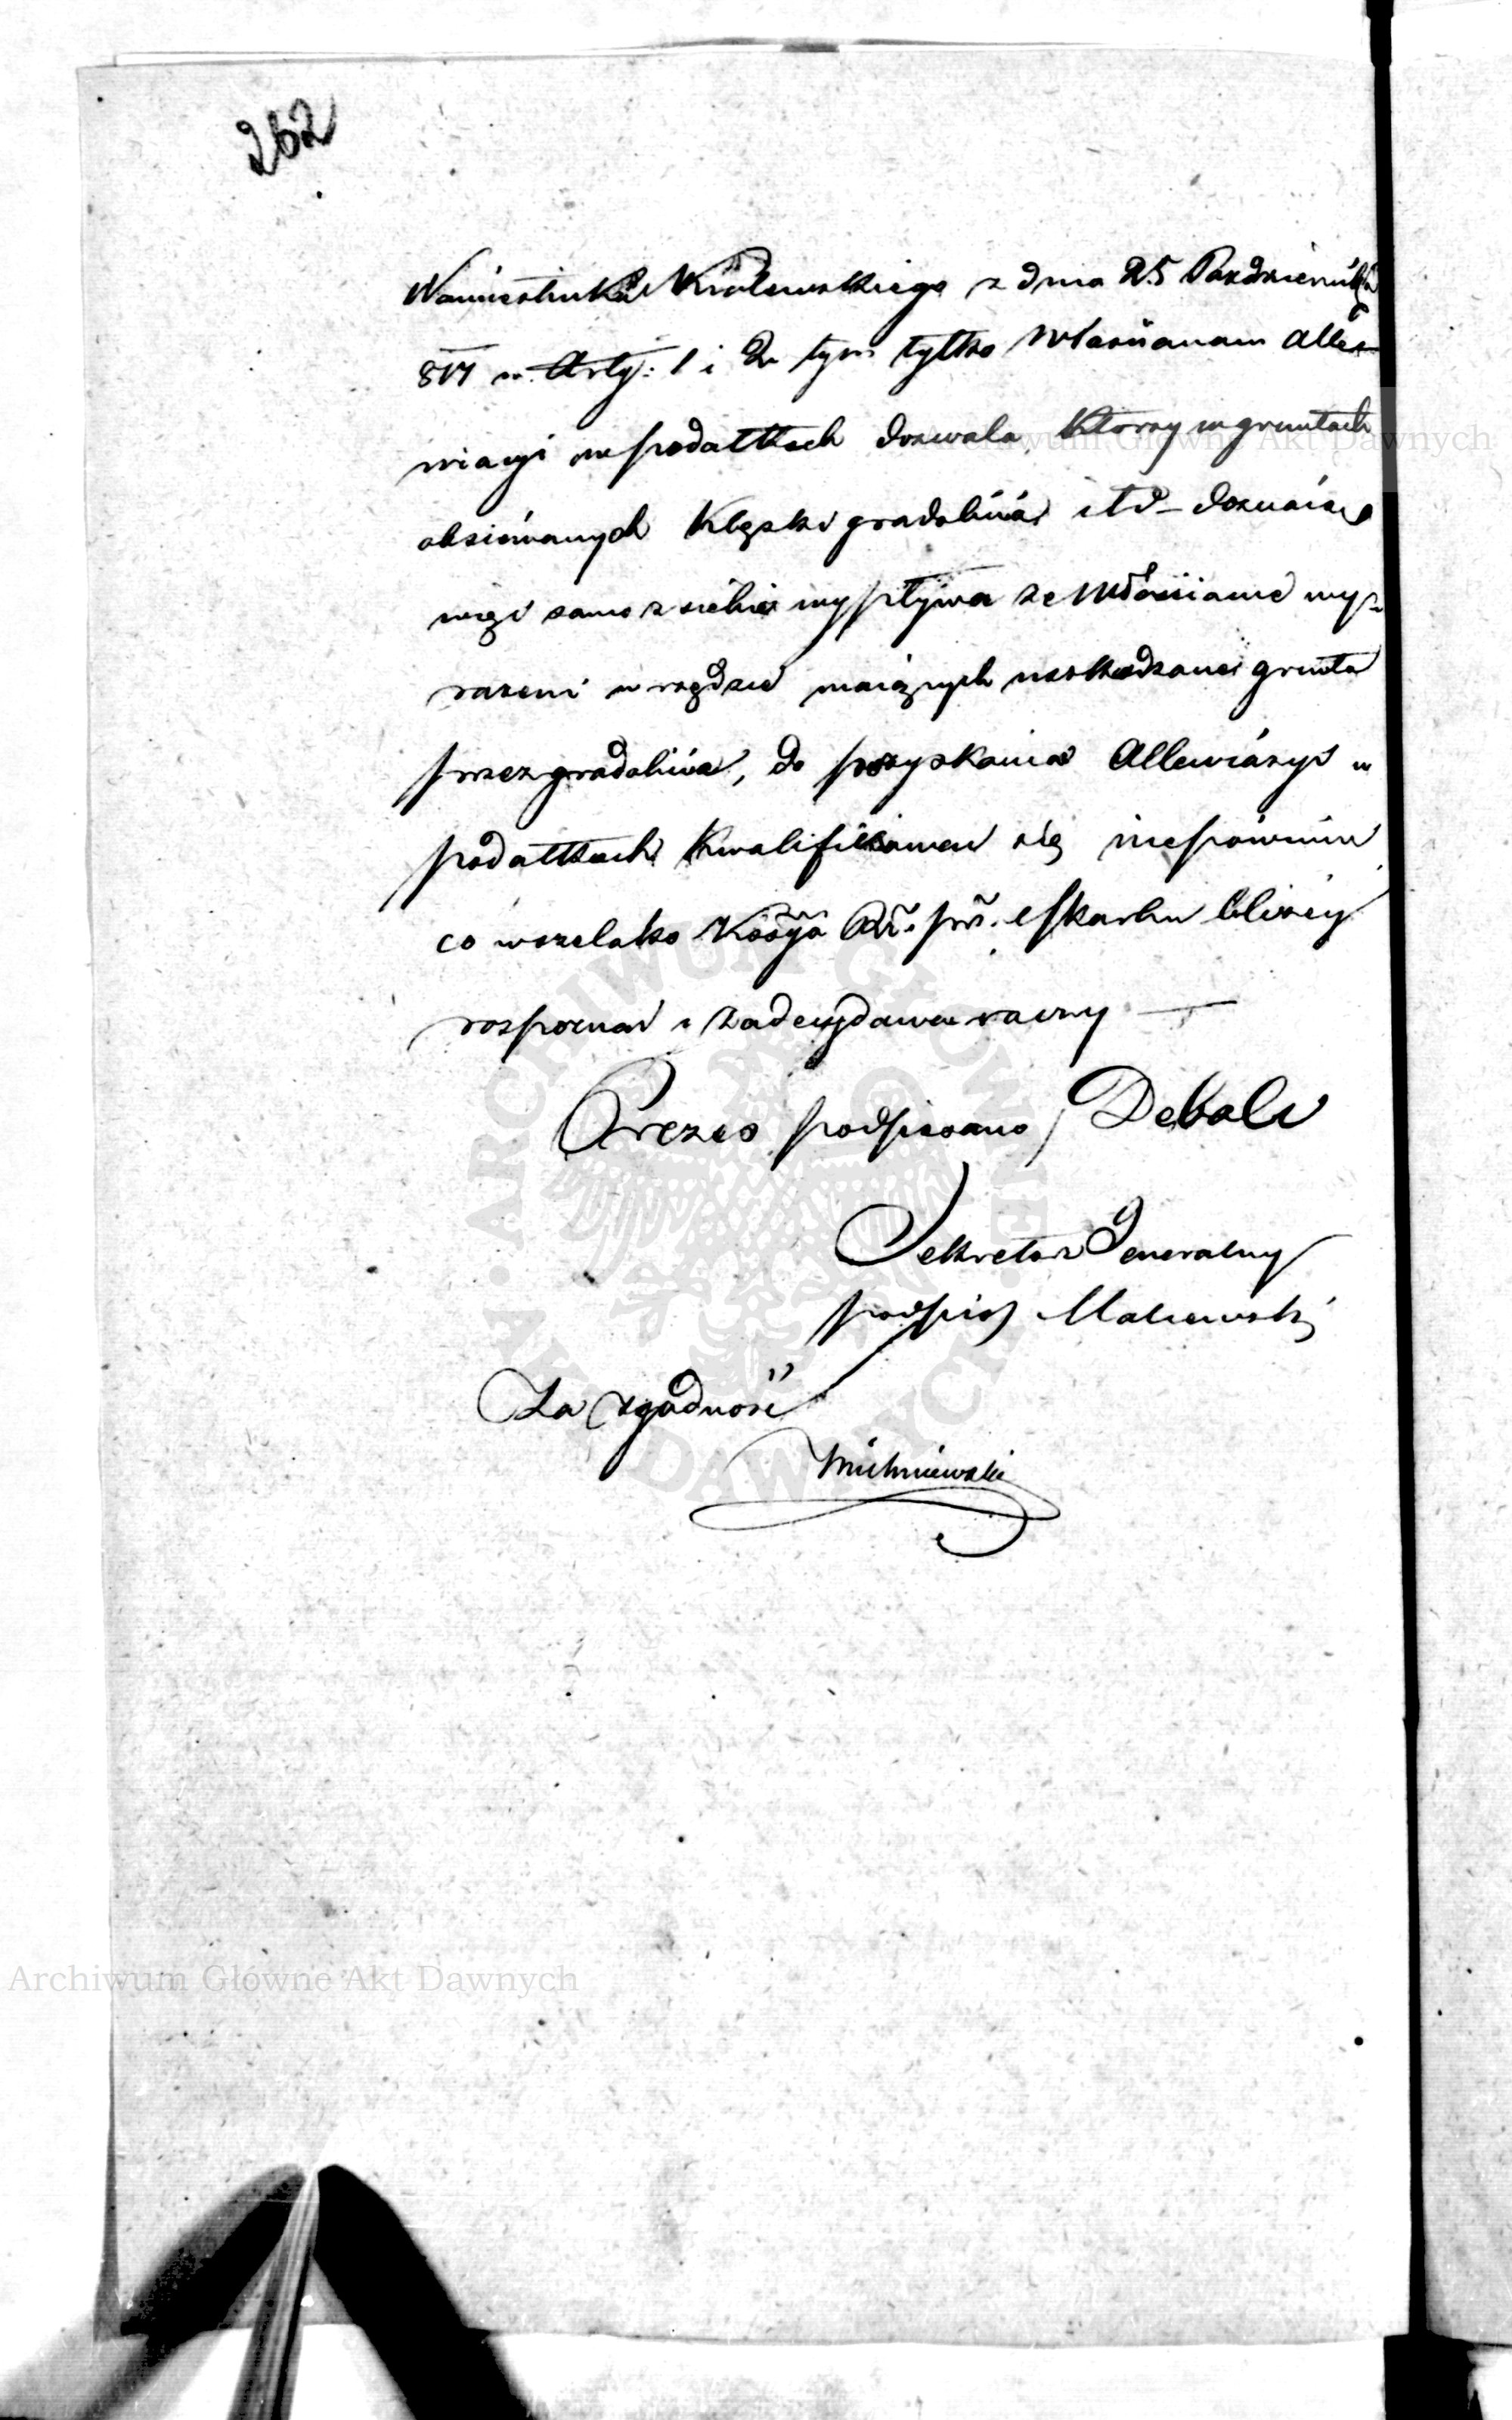 262
Namiestnika Królewskiego z dnia 25 Pazdziernika
817 w Arty: 1 i 2 tym tylko Włościanom alle-
wiacyi w podatkach dozwala, ktorzy w gruntach
obsiewanych klęski gradobicia itd- doznaią
więc samo z siebie wypływa że Włościanie wy-
rażeni w rzędzie maiących uszkodzone grunta
przez gradobicia, do pozyskania Allewiacyi w
podatkach kwalifikować się niepowinni
co wszelako Kossya Rz. prz. i Skarbu bliżey
rozpoznać i zadecydować raczy —
Prezes podpisano / Deboli
Sekretarz Generalny
podpis) Malewski
Za zgodność
Michniewski
Archiwum Główne Akt Dawnych
Archiwum Główne Akt Dawnych
ARCHIWUM GŁÓWNE AKT DAWNYCH